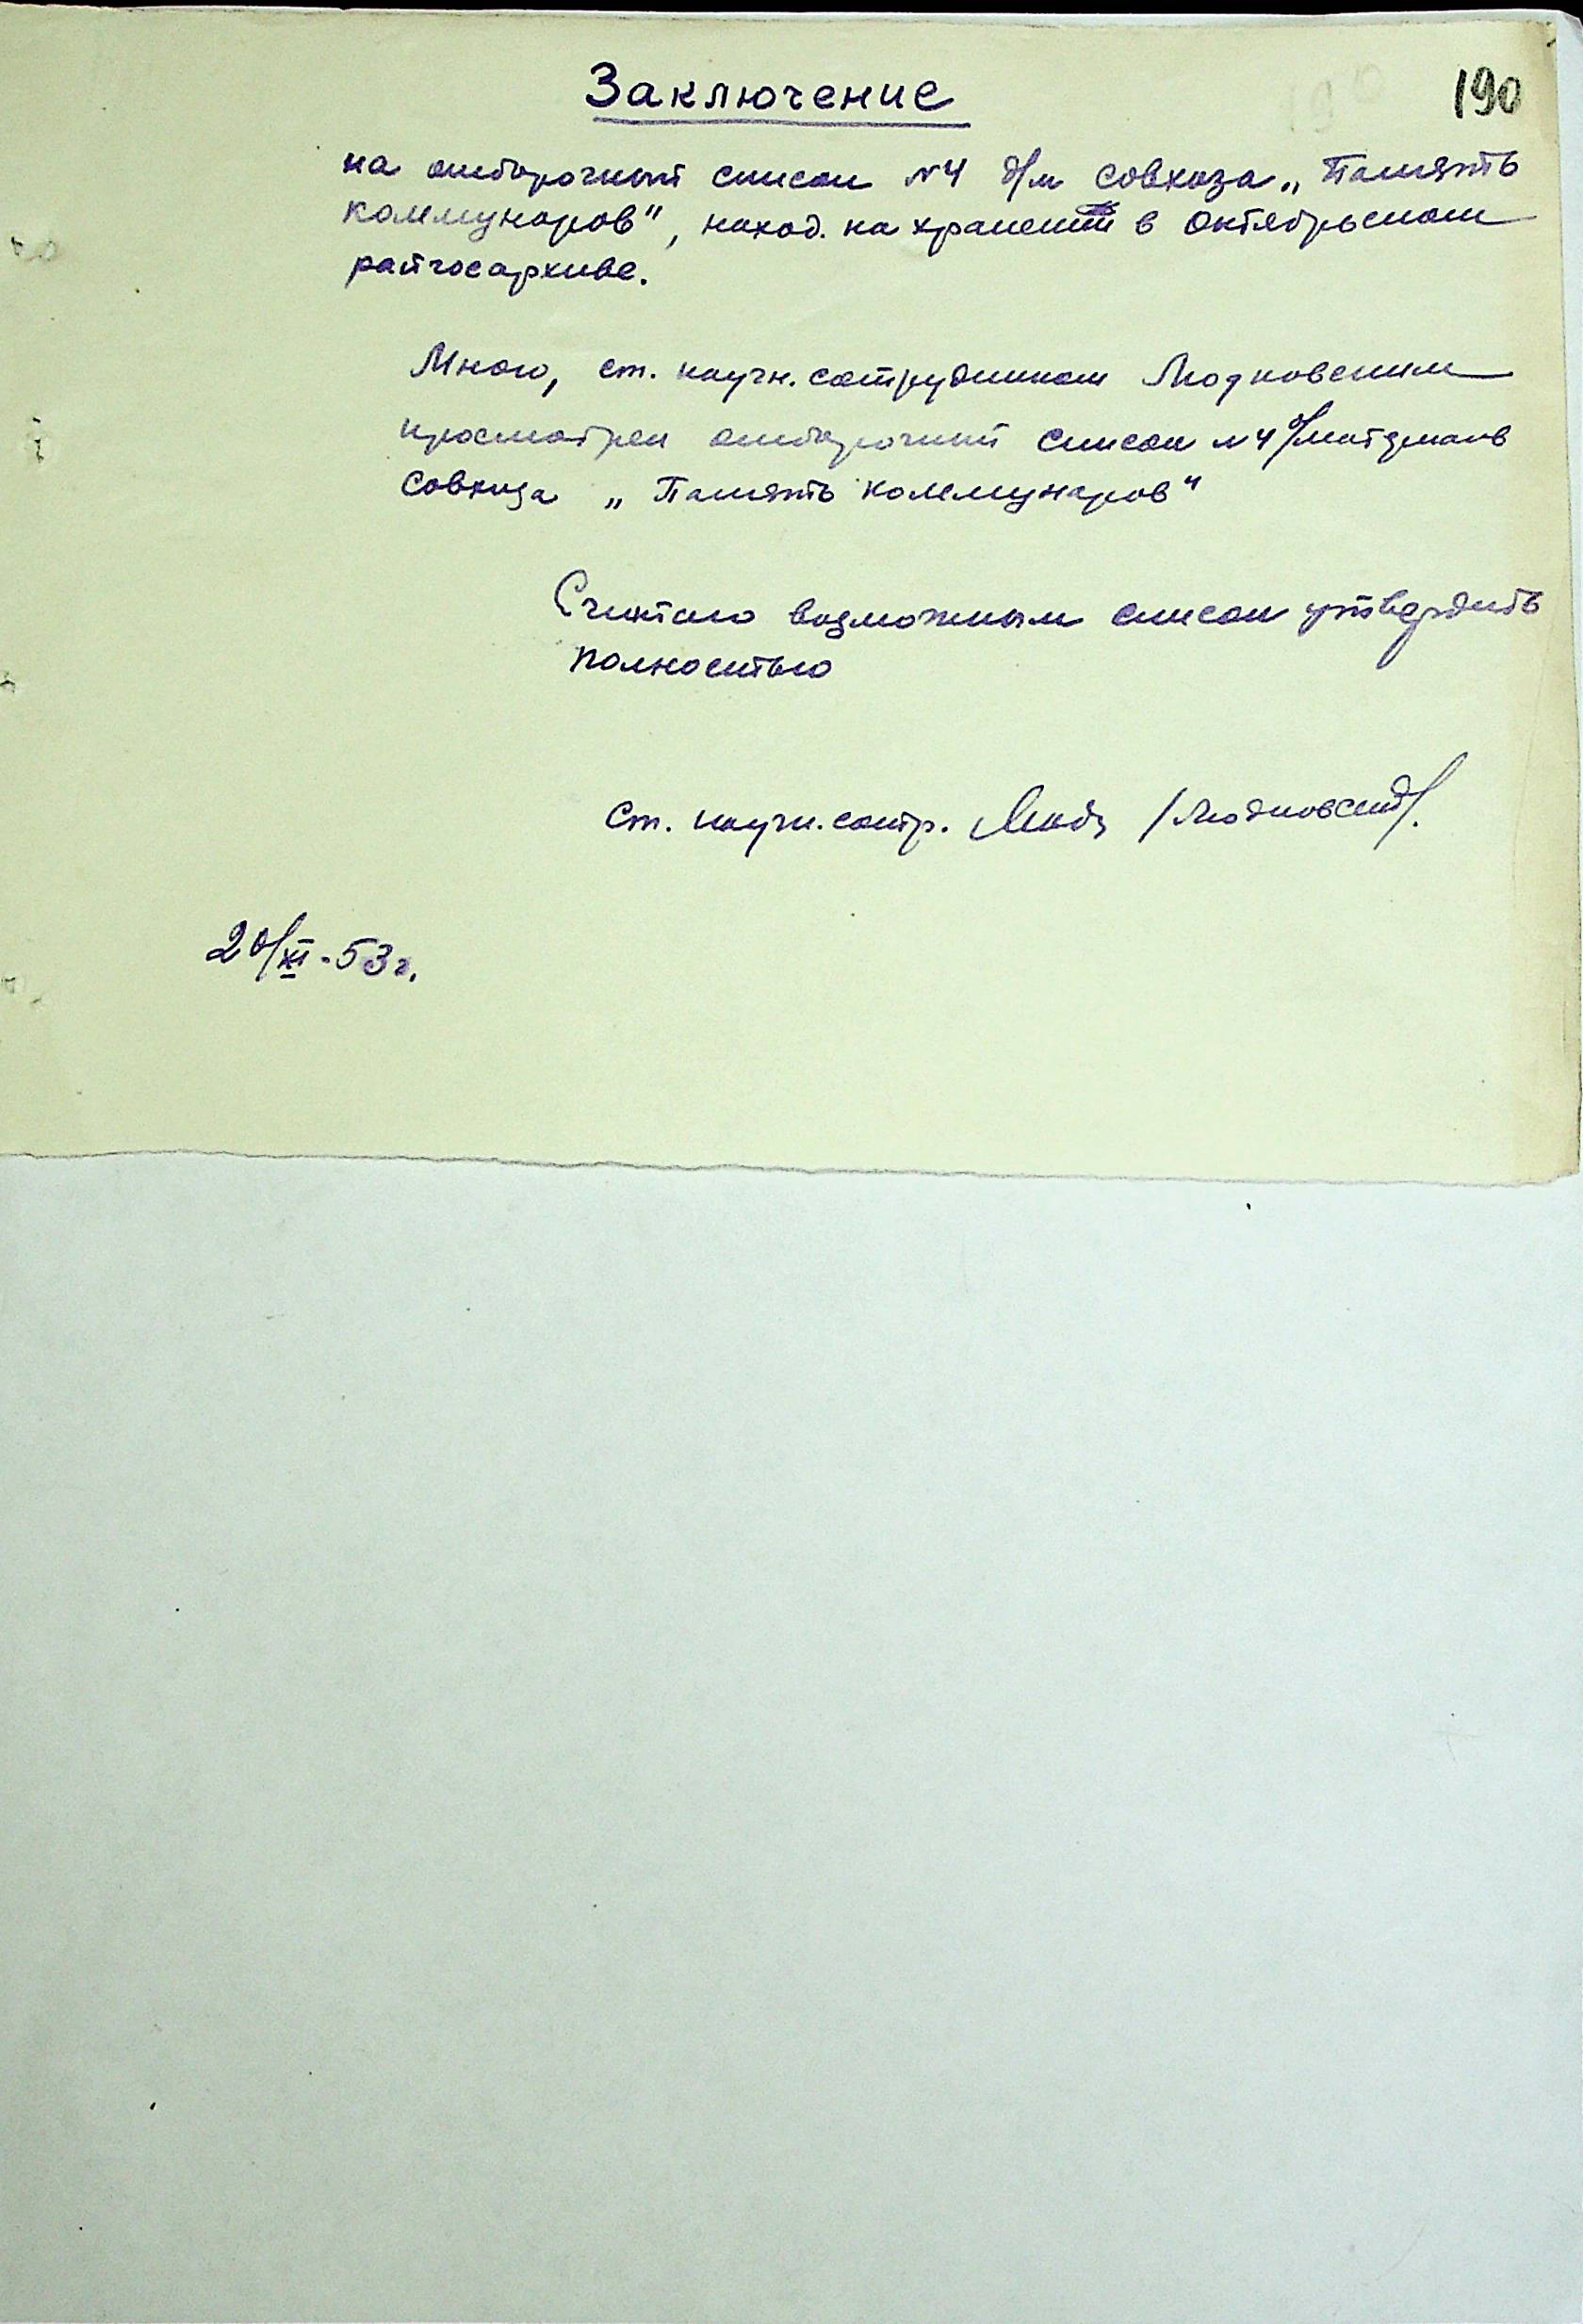 190
Заключение
на отборочный список №4 д/м совхоза „Память
коммунаров", наход. на хранении в Октябрьском
райгосархиве.
Мною, ст. научн. сотрудником
просмотрен отборочный список №4 д/материалов
совхоза „Память коммунаров"
Считаю возможным список утвердить
полностью
Ст. научн. сотр.
20/XI-53г.